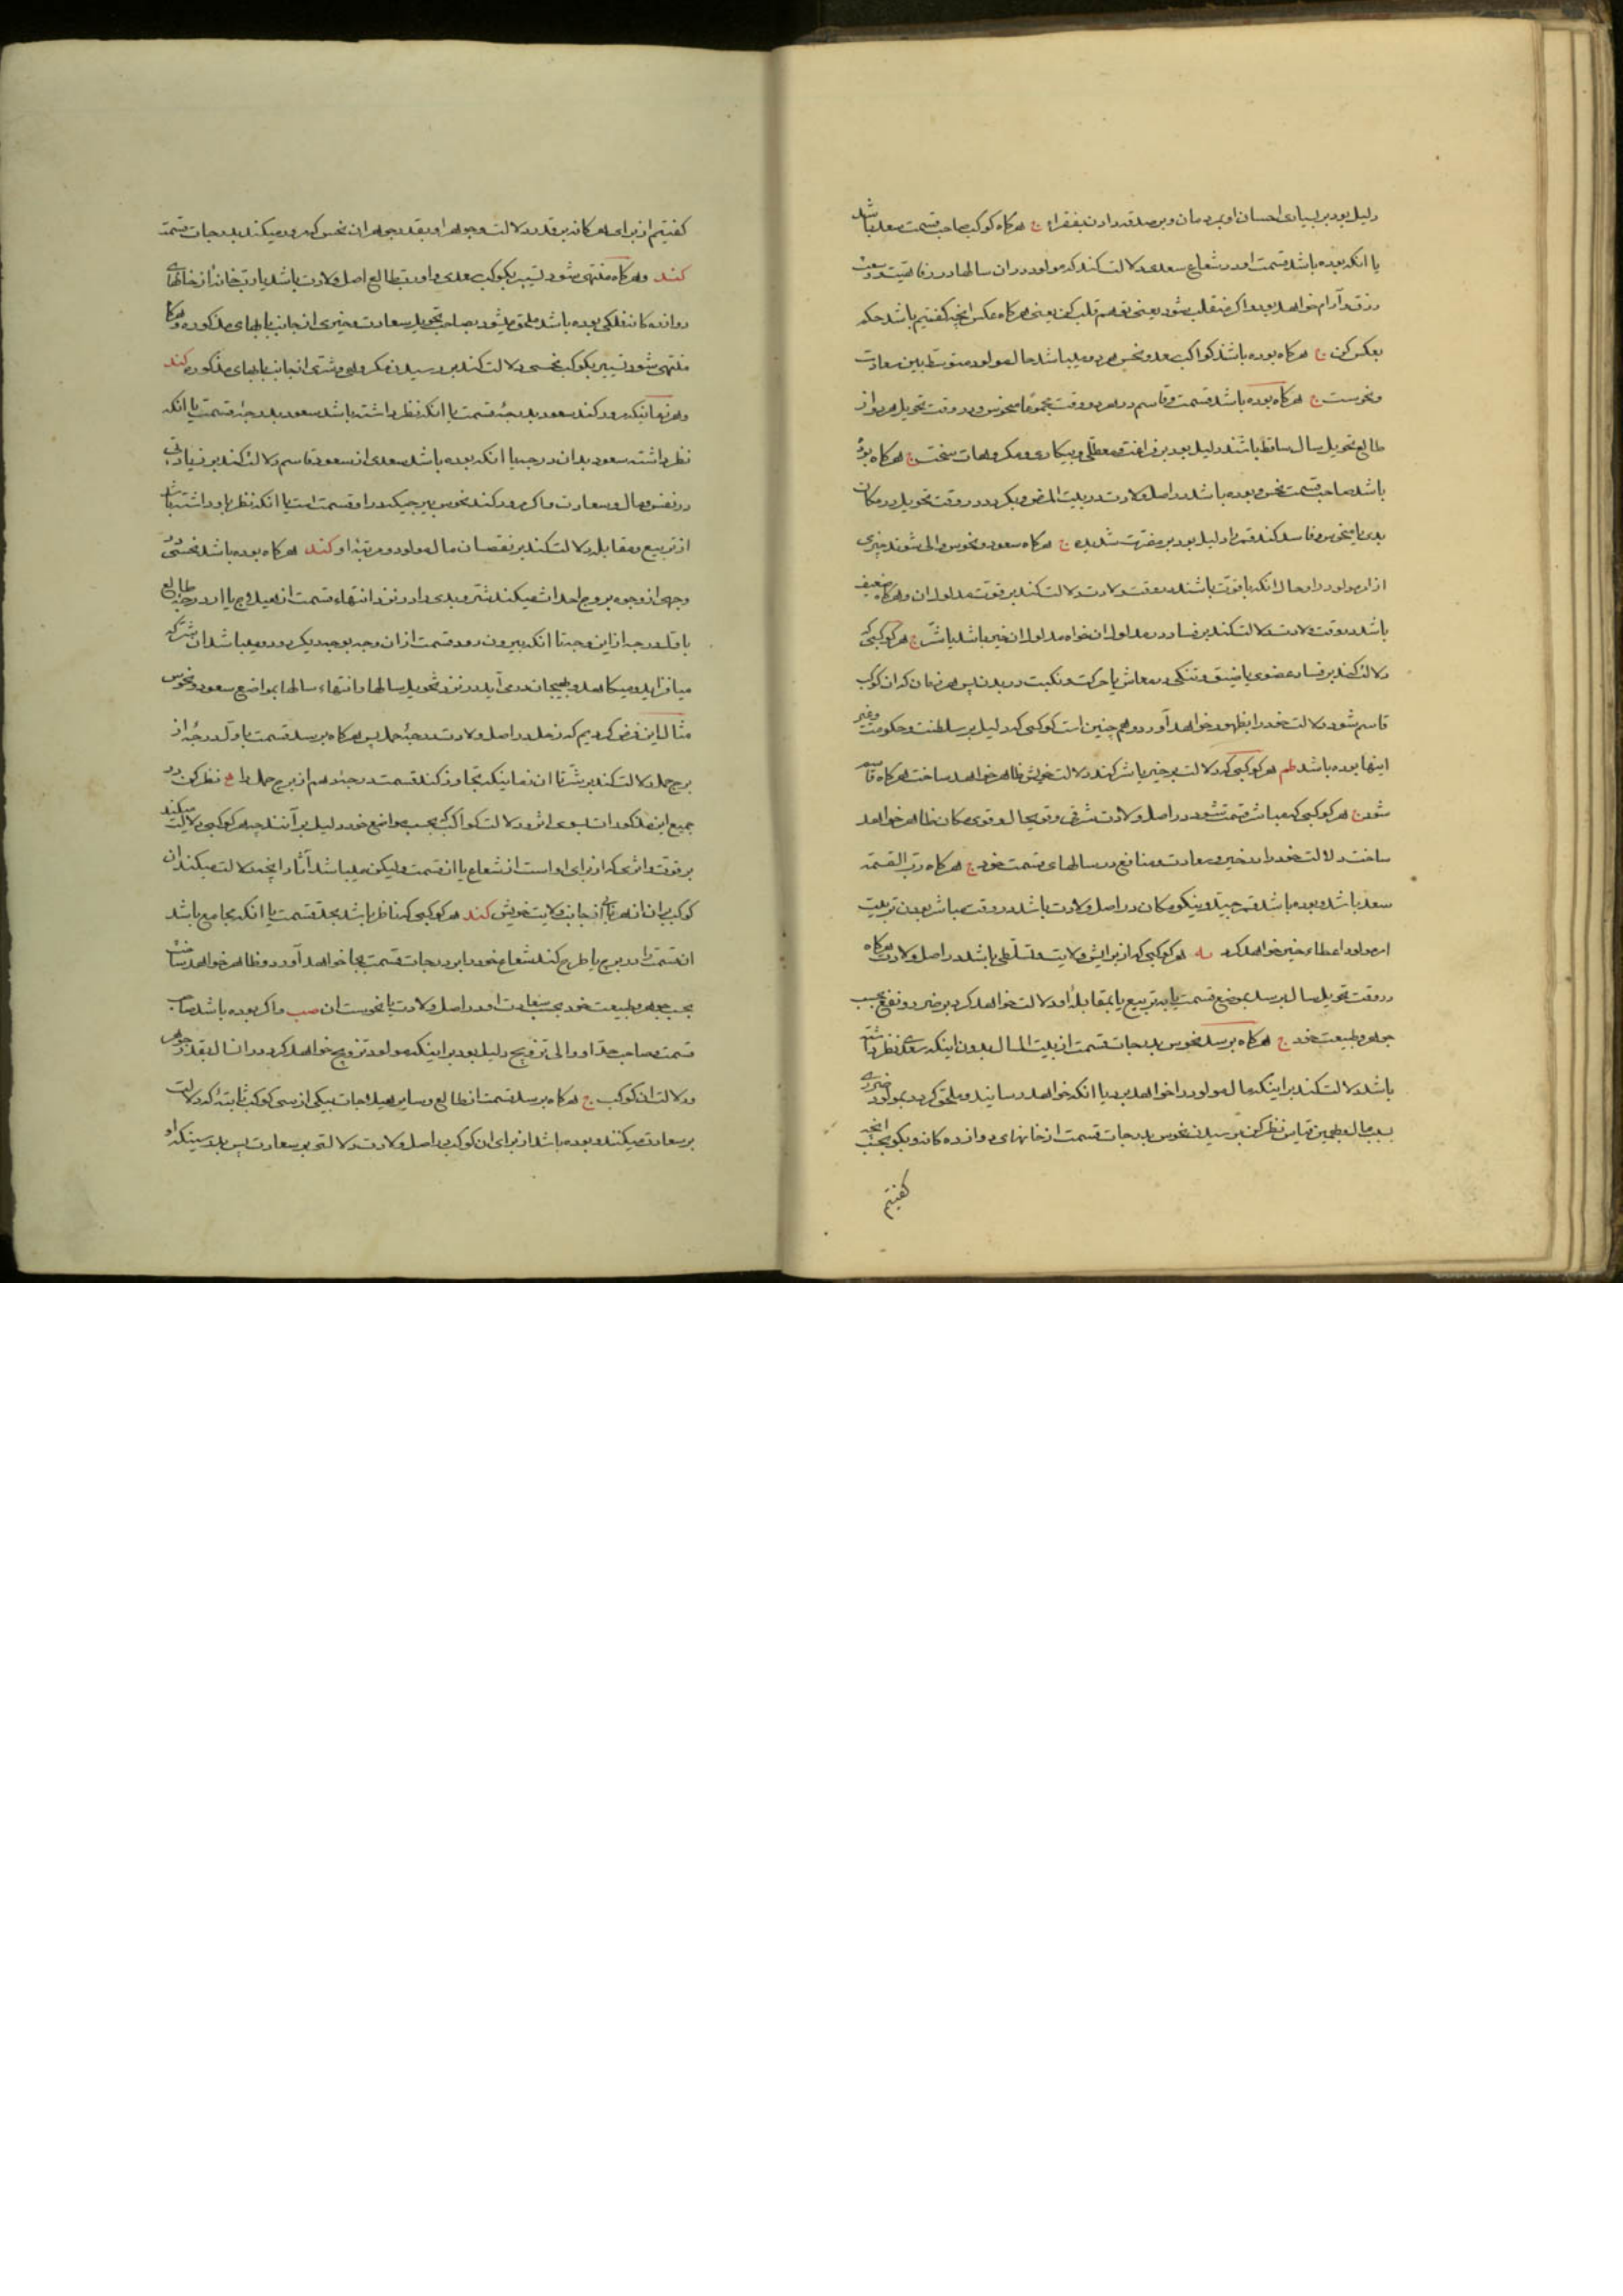 دلیل بود بر بسیاری احسان او بمردمان و بر صدقه دادن بفقراء ج هرکاه کوکب صاحب قسمت سعد باشد
یا انکه بوده باشد قسمت او در شعاع سعدی دلالت کند که مولود در ان سالها در رفاهیت و سعت
رزق و آرام خواهد بود و اکر منقلب شود یعنی تو هم قلب کن یعنی هرکاه عکس انچه کفتیم باشد حکم
بعکس کن ج هرکاه بوده باشند کواکب سعد و نحس هر دو میباشد حال مولود متوسط بین سعادت
و نحوست ج هرکاه بوده باشد قسمت و قاسم در هر دو وقت مجموعا منحوس و در وقت تحویل هر دو از
طالع تحویل سال ساقط باشند دلیل بود بر فراغت و معطلی و بیکاری و مکروهات سخت ج هرکاه بوده
باشد صاحب قسمت نحس و بوده باشد در اصل ولادت در بیت المرض و بکردد در وقت تحویل در مکان
بدی یا منحوس و فاسد کند قمر را دلیل بود بر مضرت شدیده ج هرکاه سعود و نحوس والی شوند چیزی
از امر مولود را و حال انکه با قوت باشند در وقت ولادت دلالت کند بر قوت مدلول ان و هرکاه ضعیف
باشد در وقت ولادت دلالت کند بر فساد در مدلول ان خواه مدلول ان خیر باشد یا شر ج هر کوکبی که
دلالت کند بر فساد عضوی یا ضیق و تنکی در معاش یا حرکت و نکبت در بدن پس هر زمان که ان کوکب
قاسم شود دلالت خود را بظهور خواهد آورد و هم چنین است کوکبی که دلیل بر سلطنت و حکومت و غیر
اینها بوده باشد هر کوکبی که دلالت بر خیر یا شر کند دلالت خویش ظاهر خواهد ساخت هرکاه قاسم
شود ج هر کوکبی که مباشر قسمت شود و در اصل ولادت شرقی و قوی حال و قوی مکان ظاهر خواهد
ساخت دلالت خود را در خیر و سعادت و منافع در سالهای قسمت خود ج هرکاه رب القسمة
سعد باشد و بوده باشد قمر جید و نیکو مکان در اصل ولادت باشد در وقت مباشر بودن تربیت
امر مولود اعطاء خیر خواهد کرد هر کوکبی که از برایش ولایت و تسلطی باشد در اصل ولادت هرکاه
در وقت تحویل سال برسد بموضع قسمت یا به تربیع یا بمقابله او دلالت خواهد کرد بر ضرر و نفع بحسب
جوهر و طبیعت خود ج هرکاه برسد نحوس بدرجات قسمت از بیت المال بدون اینکه سعدی نظر داشته
باشد دلالت کند بر اینکه مال مولود را خواهد برد یا انکه خواهد رسانید و ملحق کردد بمولود ضرری
بسبب مال و بهمین قیاس نظر کن برسیدن نحوس بدرجات قسمت از خانهای دوازده کانه و بکو بحسب انچه
کفتیم
کفتیم از برای هر کانه بر قدر دلالت و جوهر او بقدر جوهر ان نحس که مرور میکند بدرجات قسمت
کند و هرکاه منتهی شود تسییر بکوکب سعدی و او رب طالع اصل ولادت باشد یا رب خانه از خانهای
دوازده کانه فلکی بوده باشد ملحق میشود بصاحب تحویل سعادت و خیری از جانب بابهای مذکوره و هرکاه
منتهی شود تسییر بکوکب نحسی دلالت کند بر رسیدن مکروهی و شری از جانب بابهای مذکوره کند
و هر زمانیکه مرور کند سعود بدرجه قسمت یا انکه نظر داشته باشد سعود بدرجه قسمت یا انکه
نظر داشته سعود بدان درجه یا انکه بوده باشد سعدی از سعود قاسم دلالت کند بر زیادتی
در نفس و مال و سعادت و اکر مرور کند نحوس ببرجیکه در او قسمت است یا انکه نظر باو داشته باشد
از تربیع و مقابله دلالت کند بر نقصان مال مولود و مرتبه او کند هرکاه بوده باشد نحسی در
وجهی از وجوه بروج احداث میکند شر و بدی را در نزد انتهاء قسمت از هیلاج یا از درجه طالع
باول درجه از این وجه تا انکه بیرون رود قسمت از ان وجه بوجه دیکر و در میباشد ان شر که
میافزاید و میکاهد و بهیجان در می آید در نزد تحویل سالها و انتهاء سالها بمواضع سعود و نحوس
مثال این فرض کردیم که زحل در اصل ولادت درجه حمل پس هرکاه برسد قسمت باول درجه از
برج حمل دلالت کند بر شر تا ان زمانیکه تجاوز کند قسمت درجه دهم از برج حمل را نظر کن در
جمیع این مذکورات بسوی اثر و دلالت کواکب که بحسب مواضع خود دلیل بر آنند چه هر کوکبی دلالت میکند
بر قوت و اثری که از برای او است از شعاع یا از قسمت و لیکن میباشد آثار و انچه دلالت میکند ان
کوکب بر ان از جانب ولایت خویش کند هر کوکبی که ناظر باشد بحد قسمت یا انکه مجامع باشد
ان قسمت را در برج یا طرح کند شعاع خود را بر درجات قسمت بجا خواهد آورد و ظاهر خواهد ساخت
بحسب جوهر و طبیعت خود بحسب سعادت او در اصل ولادت یا نحوست ان و اکر بوده باشد صاحب
قسمت صاحب حد او والی تزویج دلیل بود بر اینکه مولود تزویج خواهد کرد در انسال بقدر جوهر
و دلالت ان کوکب ج هرکاه برسد قسمت از طالع و سایر هیلاجات بیکی از سی کوکب ثابته که دلالت
بر سعادت میکنند و بوده باشد از برای ان کوکب در اصل ولادت دلالتی بر سعادت پس بدرستیکه او